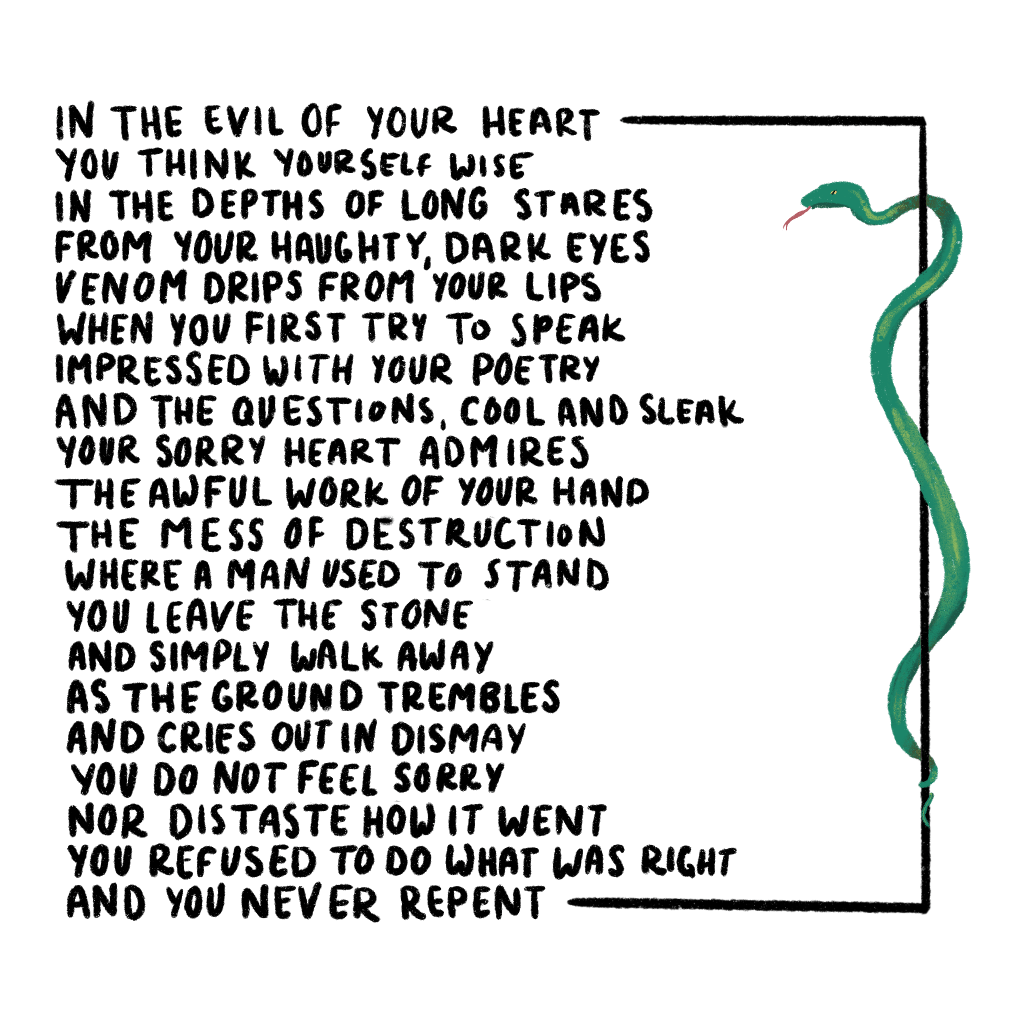 IN THE EVIL OF YOUR HEART
YOU THINK YOURSELF WISE
IN THE DEPTHS OF LONG STARES
FROM YOUR HAUGHTY, DARK EYES
VENOM DRIPS FROM YOUR LIPS
WHEN YOU FIRST TRY TO SPEAK
IMPRESSED WITH YOUR POETRY
AND THE QUESTIONS, COOL AND SLEAK
YOUR SORRY HEART ADMIRES
THE AWFUL WORK OF YOUR HAND
THE MESS OF DESTRUCTION
WHERE A MAN USED TO STAND
YOU LEAVE THE STONE
AND SIMPLY WALK AWAY
AS THE GROUND TREMBLES
AND CRIES OUT IN DISMAY
YOU DO NOT FEEL SORRY
NOR DISTASTE HOW IT WENT
YOU REFUSED TO DO WHAT WAS RIGHT
AND YOU NEVER REPENT